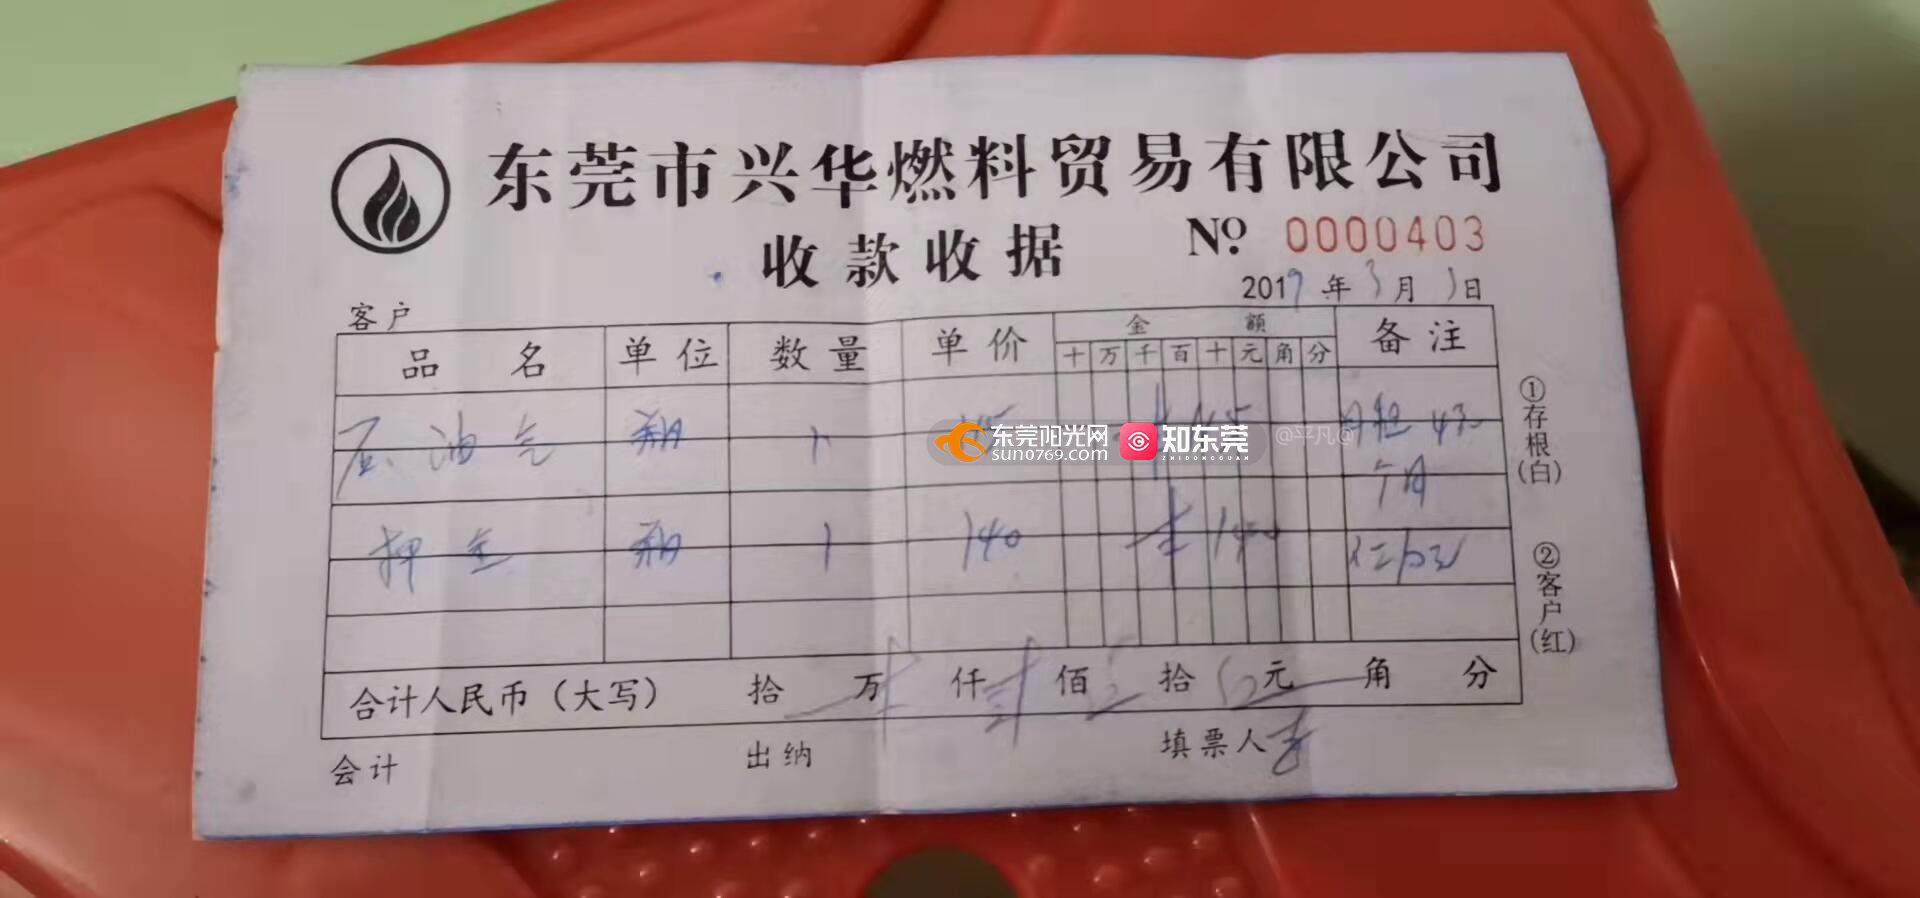 东莞市兴华燃料贸易有限公司
收款收据
No. 0000403
2019年3月1日
客户
品名 单位 数量 单价 金额 备注
十 万 千 百 十 元 角 分
油气 瓶 1 月租
东莞阳光网 sun0769.com 知东莞 ZHIDONGGUAN @平凡@
个月
押金 瓶 1 140 ¥ 140
①存根(白)
②客户(红)
合计人民币(大写) 拾 万 仟 佰 拾 元 角 分
会计 出纳 填票人